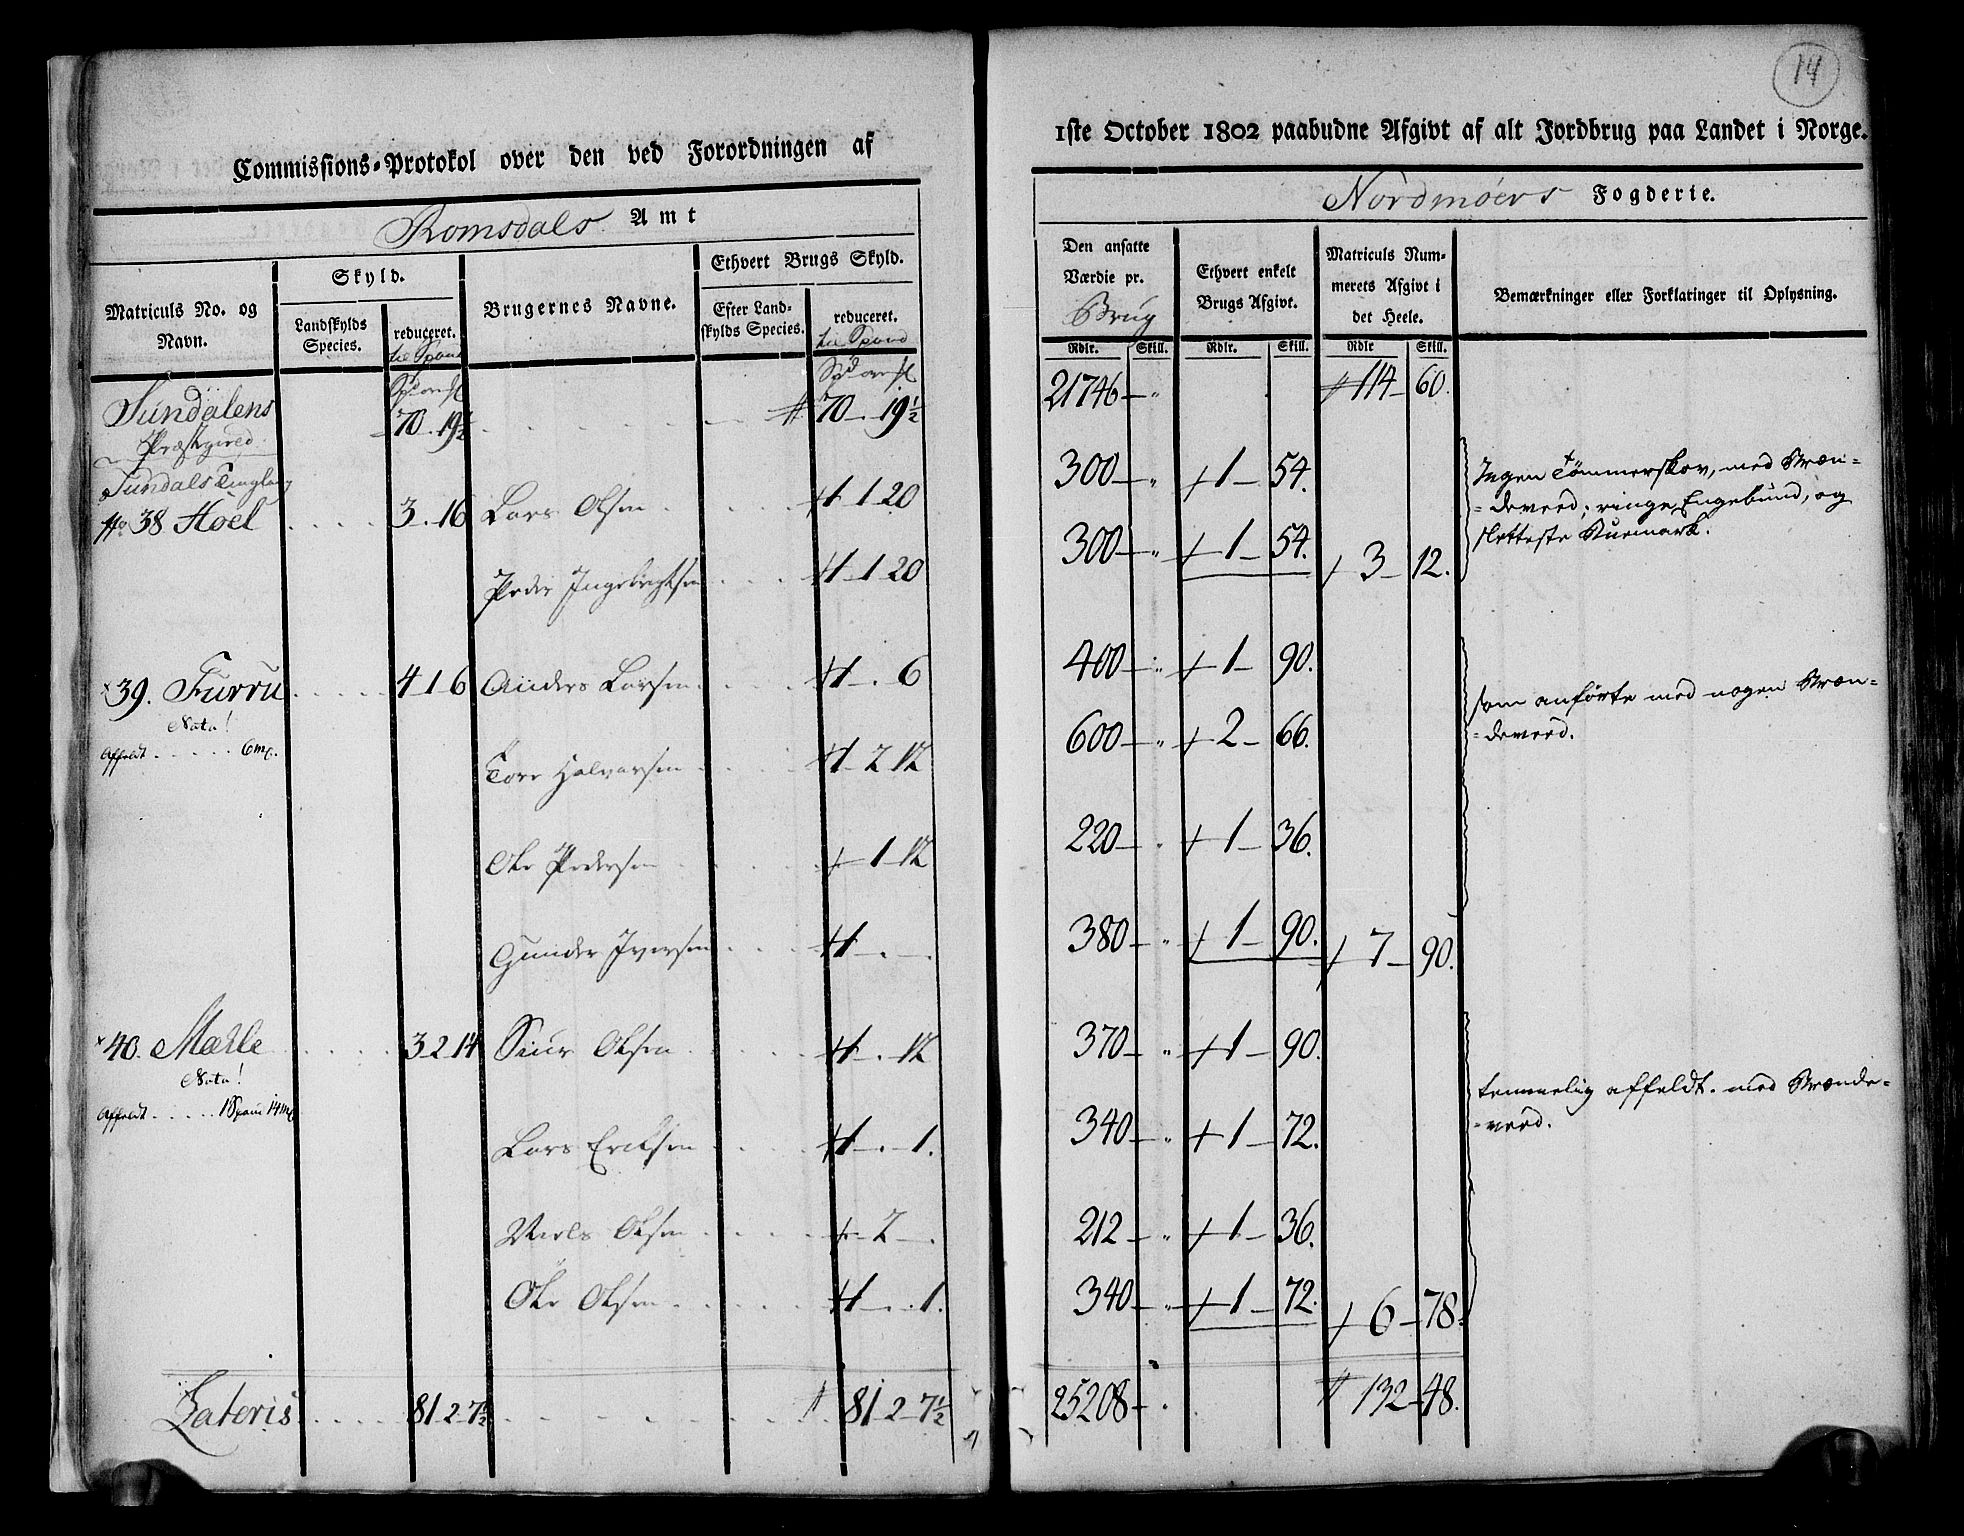 14
Commissions-Protokol over den ved Forordningen af
1ste October 1802 paabudne Afgivt af alt Jordbrug paa Landet i Norge.
Romsdals Amt
Nordmöers Fogderie.
Matriculs No. og Navn.
Skyld.
Landskylds Species.
reduceret. til Spand
Brugernes Navne.
Ethvert Brugs Skyld.
Efter Landskylds Species.
reduceret. til Spand
Den ansatte Værdie pr. Brug
Ethvert enkelt Brugs Afgivt.
Matriculs Nummerets Afgivt i det Heele.
Bemærkninger eller Forklaringer til Oplysning.
Rdlr. Skill. Rdlr. Skill. Rdlr Skill.
Sundalens 70. 19½ 70. 19½ 21746 — " 114 — 60.
Præstegield
Sundals Tinglaug
No 38 Hoel . . . . 3. 16 Lars Olsen . . . . 1 — 1 20 300 — " 1 — 54. Ingen Tömmerskov, med Bræn=
=deveed; ringe Engebund, og
sletteste Buemark.
Peder Ingebrigtsen . . . 1 — 1 20 300 — " 1 — 54. 3 — 12.
39. Furru . . . . 4 1 6 Anders Larsen . . . . 1 — . 6 400 — " 1 — 90. som anförte med nogen Bræn=
=deveed.
Nota!
Affeldt . . . . . 6 mk.
Tore Halvorsen . . . . 1 — 2 12 600 — " 2 — 66.
Ole Pedersen . . . . 1 — 12 220 — " 1 — 36.
Gunder Iversen . . . 1 — . — . 380 — " 1 — 90. 7 — 90.
40. Mæhle . . . . 3 2 14 Siur Olsen . . . . 1 — . 12 370 — " 1 — 90. temmelig affeldt. med Brænde=
=veed.
Nota!
Affeldt . . . . . 1 Spand 14 mk
Lars Eriksen . . . . 1 — . — 1. 340 — " 1 — 72.
Niels Olsen . . . . 2 — . 212 — " 1 — 36.
Ole Olsen . . . . . 1 — . . 1. 340 — " 1 — 72. 6 — 78.
Lateris . . . . 81 2 7½ . . . . . . 81 — 2 — 7½ 25208 — . 132 — 48.